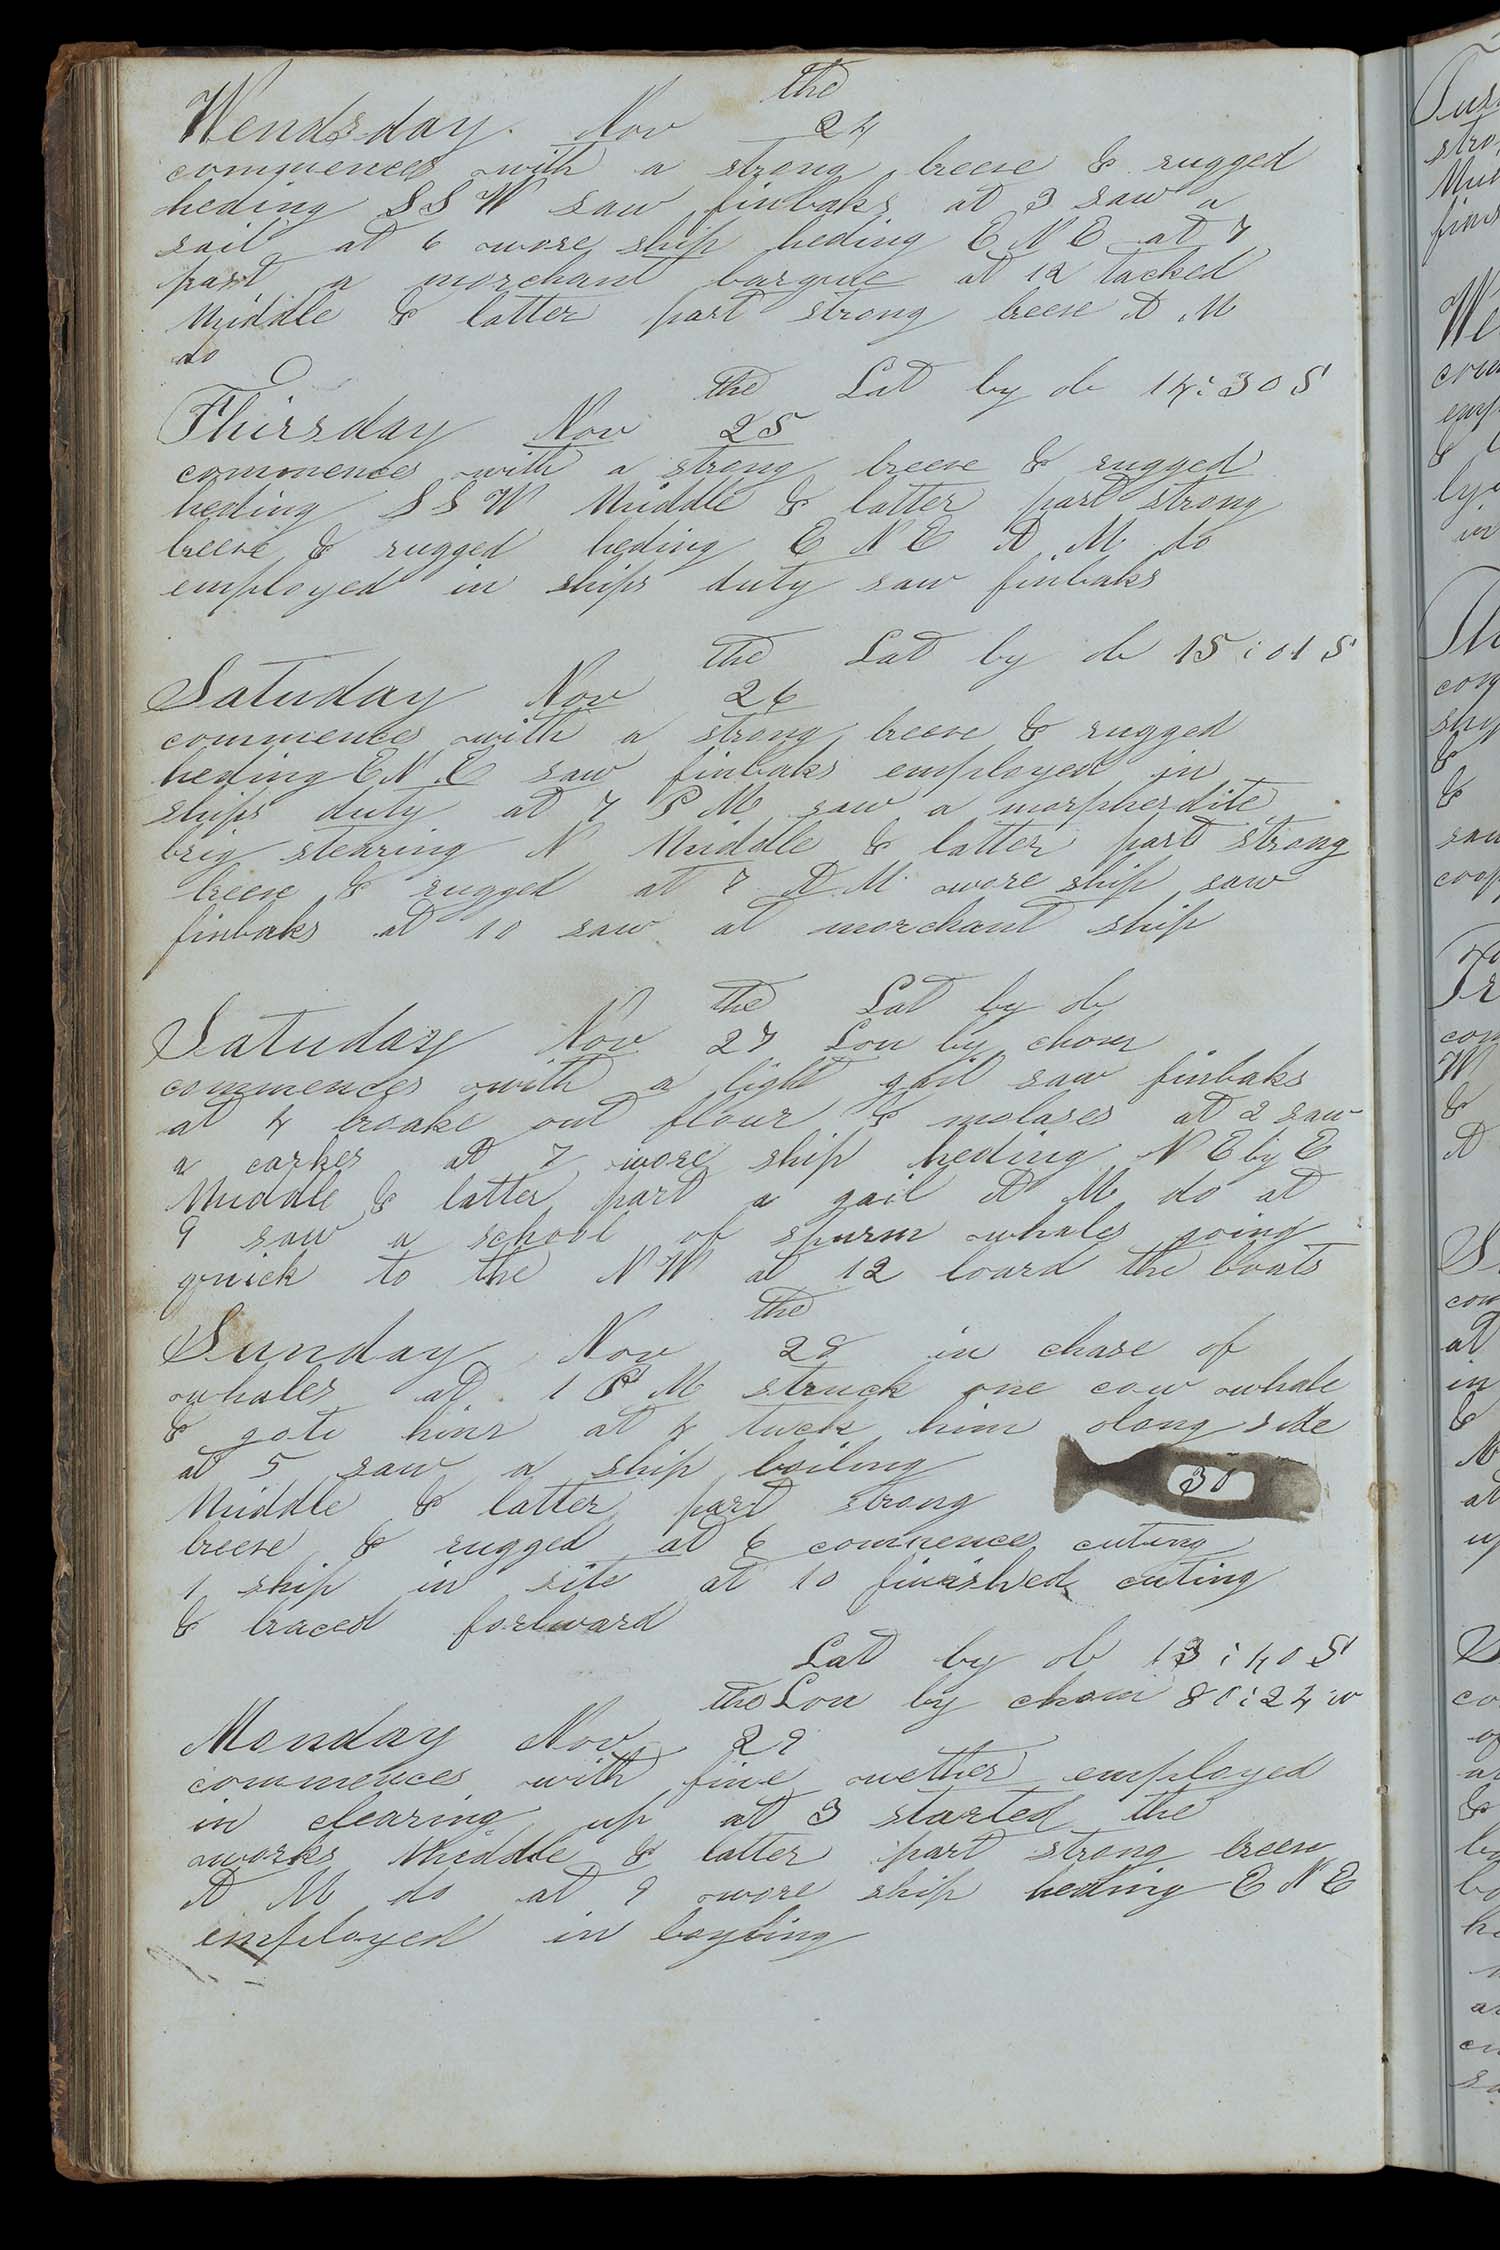 the
Wendsday Nov 24
commences with a strong breese & rugged
heding S S W saw finbaks at 3 saw a
sail at 6 wore ship heding E N E at 7
past a morchant barque at 12 tacked
Middle & latter part strong breese A M
do
the Lat by ob 14:30 S
Thirsday Nov 25
commences with a strong breese & rugged
heding S S W Middle & latter part strong
breese & rugged heding E N E A M do
employed in ships duty saw finbaks
the Lat by ob 15:01 S
Satuday Nov 26
commences with a strong breese & rugged
heding E N E saw finbaks employed in
ships duty at 7 P M saw a morpherdite
brig stearing N Middle & latter part strong
breese & rugged at 7 A M wore ship saw
finbaks at 10 saw at morchant ship
the Lat by ob
Satuday Nov 27 Lon by chom
commences with a light gail saw finbaks
at 4 broake out flour & molases at 2 saw
a at 7 wore ship heding N E by E
Middle & latter part a gail A M do at
9 saw a school of spurm whales going
quick to the N W at 12 loard the boats
the
Sunday Nov 28 in chase of
whales at 1 P M struck one cow whale
& gote him at 4 tuck him olong side
at 5 saw a ship boiling
30
Middle & latter part strong
breese & rugged at 6 commences cuting
1 ship in site at 10 finished cuting
& braced forlward
Lat by ob 13:40 S
the Lon by chom 80:24 w
Monday Nov 29
commences with fine wether employed
in clearing up at 3 started the
works Middle & latter part strong breese
A M do at 9 wore ship heding E N E
employed in boyling